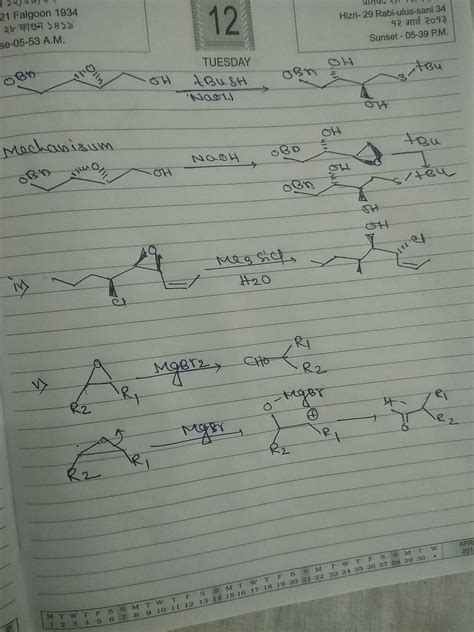 21 Falgoon 1934
২৮ ফাল্গুন ১৪১৯
se-05-53 A.M.
12
TUESDAY
Hizri- 29 Rabi-ulus-sani 34
Sunset - 05-39 P.M.
OBn O OH tBuSH NaOH OBn OH S tBu OH
Mechanisum
OBn O OH NaOH OBn OH O tBu
OBn OH S tBu OH
iv) O Cl Me3SiCl H2O OH Cl
v) O R2 R1 MgBr2 CHO R1 R2
O R2 R1 MgBr O-MgBr ⊕ R1 R2 H O R1 R2
M T W T F S S M T W T F S S M T W T F S S M T W T F S S M T W
1 2 3 4 5 6 7 8 9 10 11 12 13 14 15 16 17 18 19 20 21 22 23 24 25 26 27 28 29 30